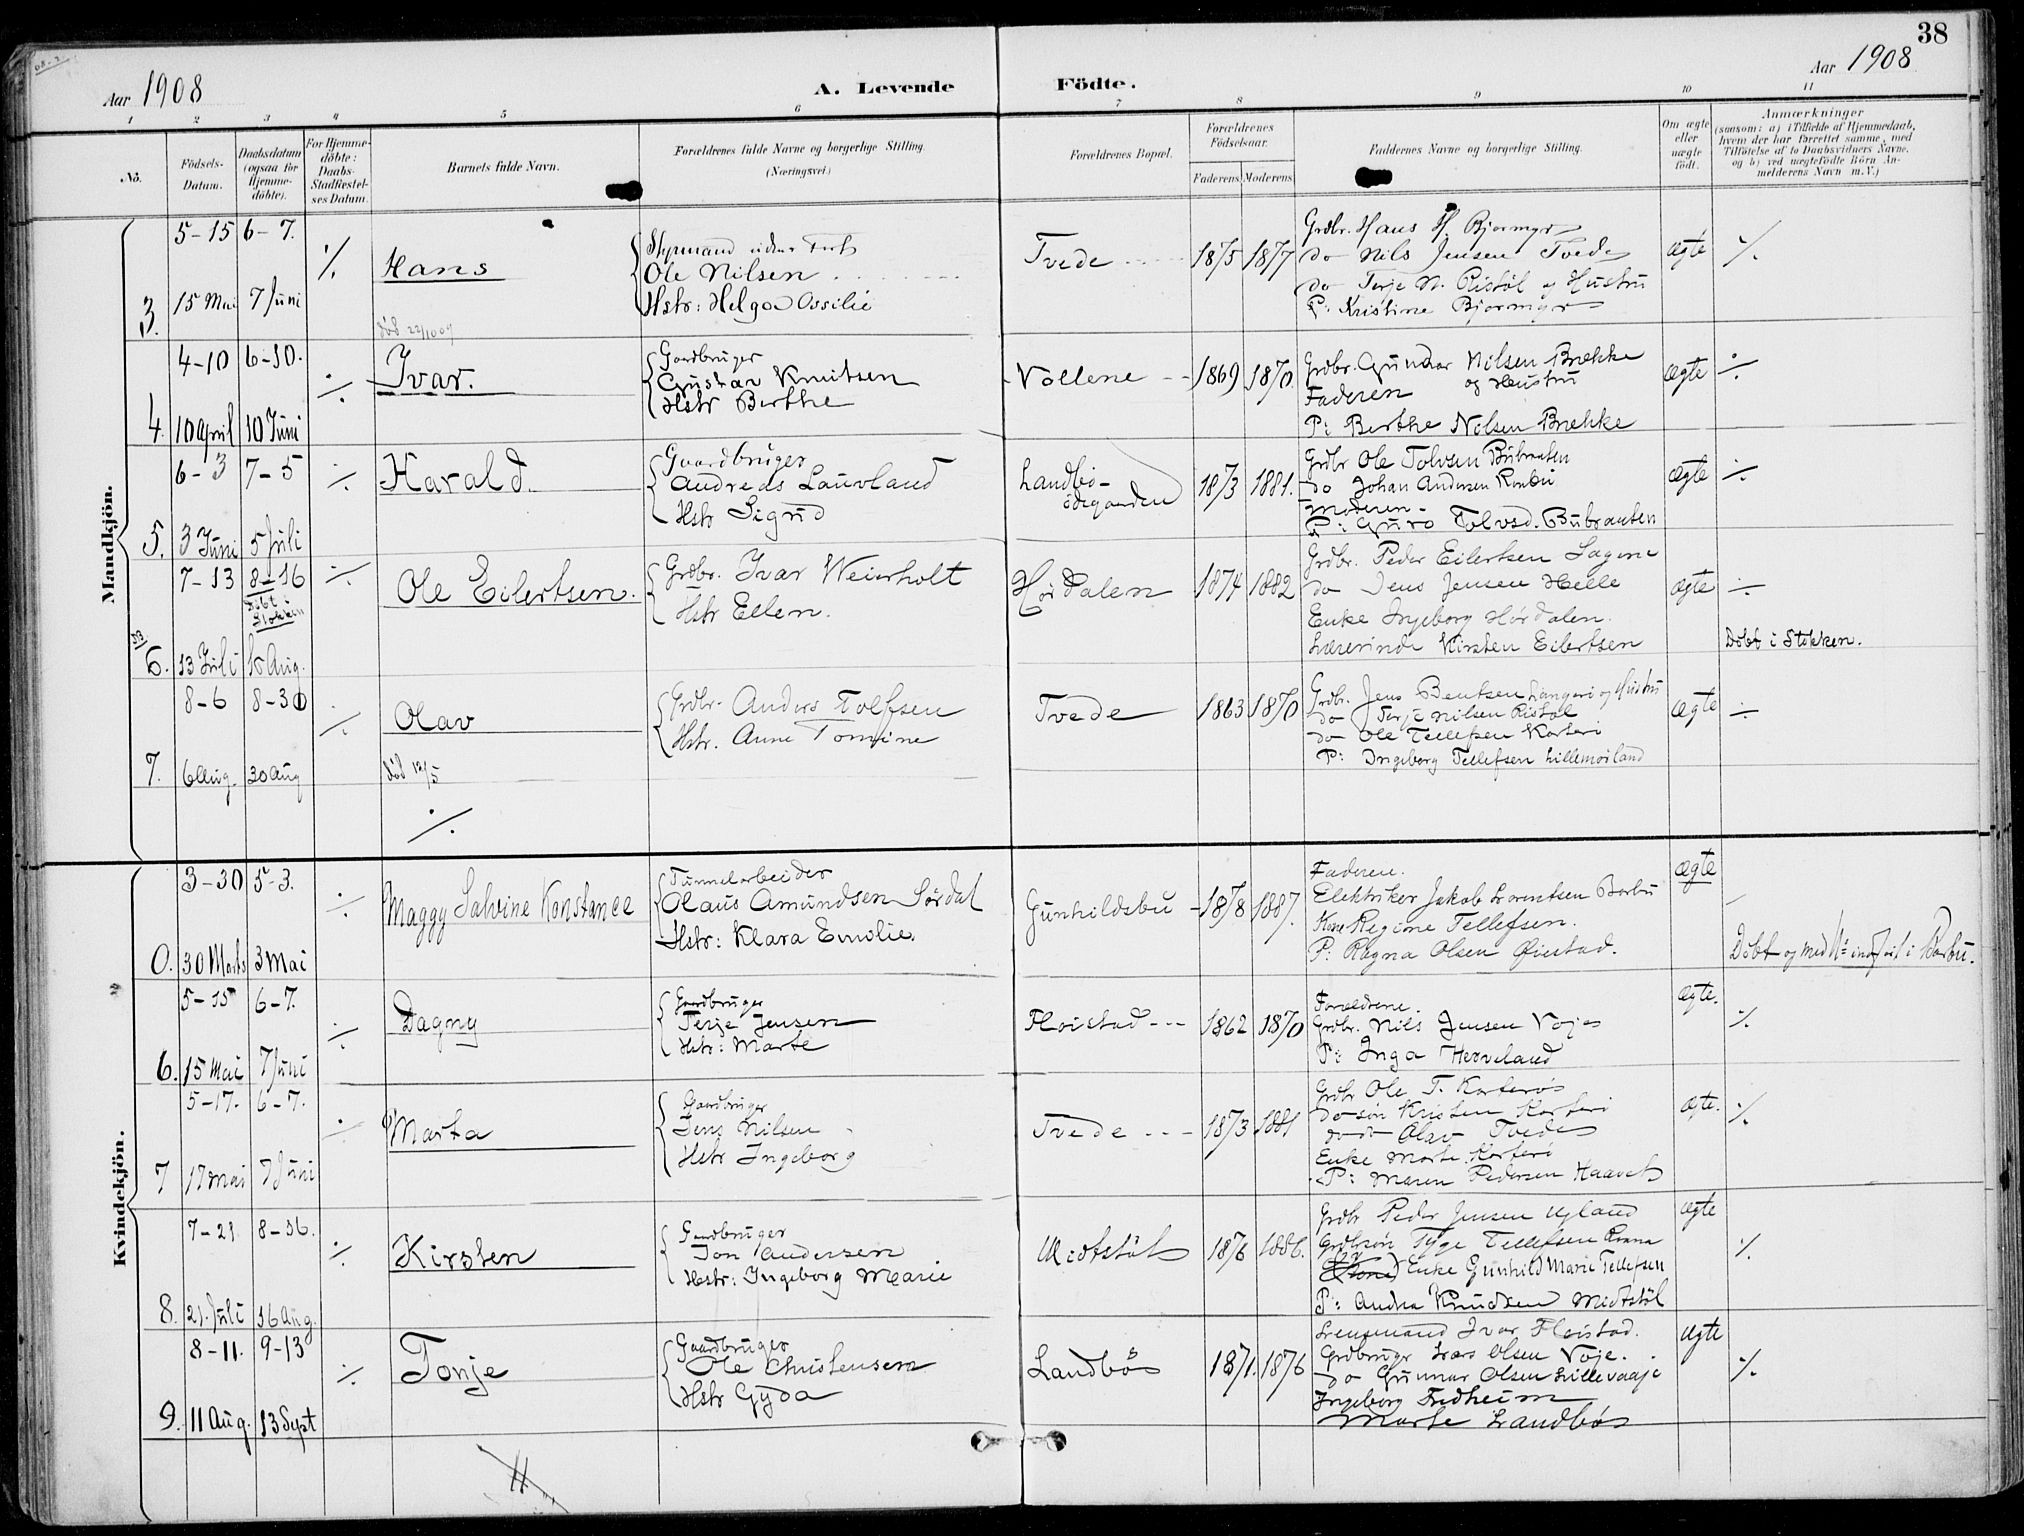 38
Aar 1908
A. Levende Födte.
Aar 1908
1 2 3 4 5 6 7 8 9 10 11
No.
Födsels-Datum.
Daabsdatum (ogsaa for Hjemme-döbte).
For Hjemme-döbte: Daabs-Stadfæstel-ses Datum.
Barnets fulde Navn.
Forældrenes fulde Navne og borgerlige Stilling.
(Næringsvei.)
Forældrenes Bopæl.
Forældrenes Födselsaar.
Faderens. Moderens.
Faddernes Navne og borgerlige Stilling.
Om ægte eller uægte födt.
Anmærkninger
(saasom: a) i Tilfælde af Hjemmedaab, hvem der har forrettet samme, med Tilföielse af to Daabsvidners Navne, og b) ved uægtefödte Börn An-melderens Navn m. V.)
Mandkjön.
3. 5-15 6-7.
15 Mai 7 Juni
Hans
Styrmand
Ole Nilsen
Hstr: Helga Assilie
Tvede 1875 1877
Grdbr. Hans H. Bjormyr
do Nils Jensen Tvede
do Terje N. Ristøl og Hustru
P: Kristine Bjormyr
ægte
død 22/10 09
4. 4-10 6-10.
10 April 10 Juni
Ivar.
Gaardbruger
Gustav Knutsen
Hstr Berthe
Vollene 1869 1870
Grdbr. Gunder Nilsen Brekke
og Hustru
Faderen
P: Berthe Nilsen Brekke
ægte
5. 6-3 7-5
3 Juni 5 Juli
Harald.
Gaardbruger
Andreas Lauvland
Hstr Sigrid
Landbø-
ødegaarden
1873 1881.
Grdbr Ole Tolvsen Bubraaten
do Johan Andersen
Moderen-
P: Guro Tolvsd. Bubraaten
ægte
6. 7-13 8-16
Døbt i Stokken
13 Juli 16 Aug.
Ole Eilertsen.
Grdbr. Ivar Weierholt
Hstr Ellen.
Hørdalen 1874 1882
Grdbr. Peder Eilertsen Sagene
do Jens Jensen Helle
Enke Ingeborg Hørdalen.
Lærerinde Kirsten Eilertsen
ægte
Døbt i Stokken.
7. 8-6 8-30
6 Aug. 30 Aug
Olav
Grdbr. Anders Tolfsen
Hstr. Anne Tomine
død 12/5
Tvede 1863 1870
Grdbr. Jens Bentsen Langeri og Hustru
do Terje Nilsen Ristøl
do Ole Tellefsen Korteri
P: Ingeborg Tellefsen Lillemørland
ægte
Kvindekjön.
0. 3-30 5-3.
30 Marts 3 Mai
Maggy Salvine Konstance
Tunnelarbeider
Olaus Amundsen Sørdal
Hstr: Klara Emilie.
Gunhildsbu 1878 1887.
Faderen.
Elektriker Jakob Lorentsen Barbu
Kone Regine Tellefsen.
P: Ragna Olsen Øiestad.
ægte
Døbt og med No indført i Barbu.
6. 5-15 6-7.
15 Mai 7 Juni
Dagny
Gaardbruger
Terje Jensen
Hstr: Marte
Fløistad 1862 1870
Forældrene.
Grdbr. Nils Jensen Voje
P: Inga Herveland
ægte.
7 5-17. 6-7.
17 mai 7 Juni
Marta
Gaardbruger
Jens Nilsen
Hstr Ingeborg
Tvede 1873 1881
Grdbr Ole T. Korterøs
do søn Kristen Korteri
do do Olav Tvede
Enke Marte Korteri
P: Maren Pedersen
ægte.
8. 7-21 8-16.
21. Juli 16 Aug.
Kirsten
Gaardbruger
Jon Andersen
Hstr: Ingeborg Marie
Midtstøl 1876 1886.
Grdbr Peder Jensen Ugland
Grdbrsøn Tyge Tellefsen
Enke Gunhild Marie Tellefsen
P: Andrea Knudsen Midtstøl
ægte
9. 8-11. 9-13
11 Aug. 13 Sept
Tonje
Gaardbruger
Ole Christensen
Hstr Gyda
Landbø 1871. 1876
Lensmand Ivar Fløistad.
Grdbruger Lars Olsen Voje.
do Gunnar Olsen Lillevaaje
Ingeborg Fredheim
Marte Landbø
ægte